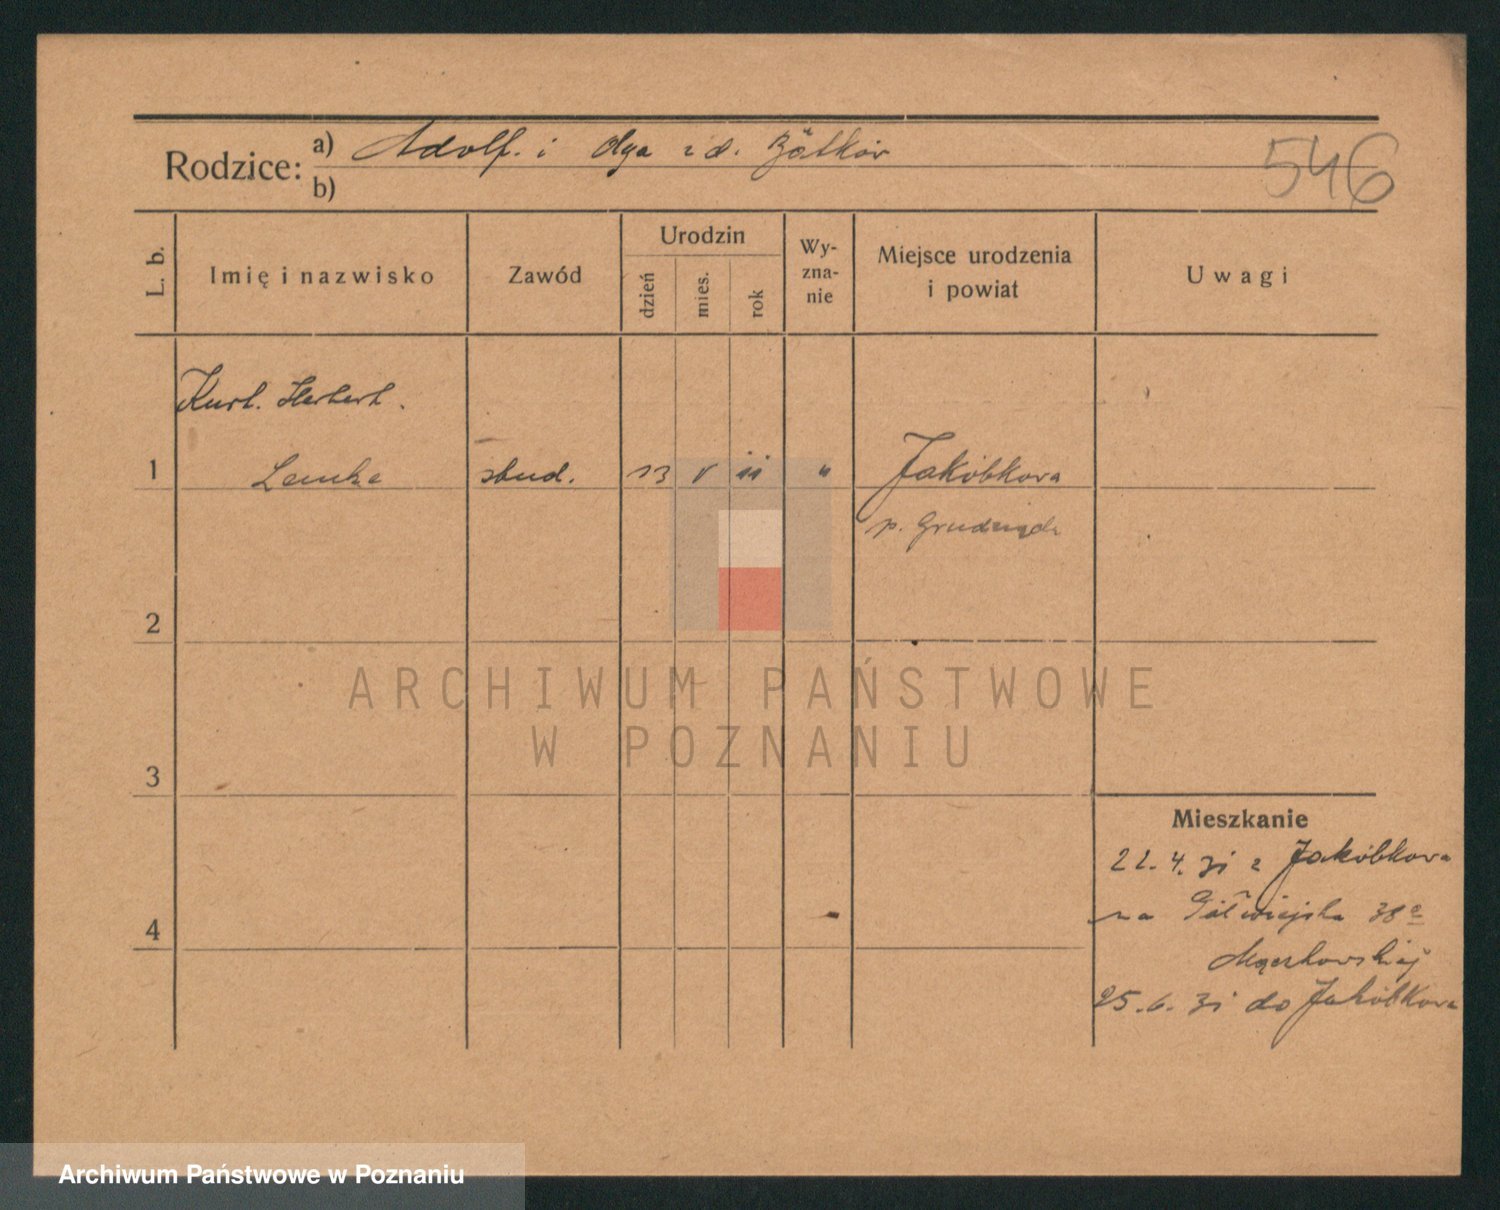 Rodzice: a) Adolf. i Olga z d. Bötków
b)
546
L. b.
Imię i nazwisko
Zawód
Urodzin
dzień
mies.
rok
Wy-
zna-
nie
Miejsce urodzenia
i powiat
Uwagi
Kurt. Herbert.
1 Lemke stud. 13 V 11 " Jakóbkowa
p. Grudziądz
2
3
4
Mieszkanie
22. 4. 31 z Jakóbkowa
na Półwiejska 38
25. 6. 31 do Jakóbkowa
ARCHIWUM PAŃSTWOWE
W POZNANIU
Archiwum Państwowe w Poznaniu